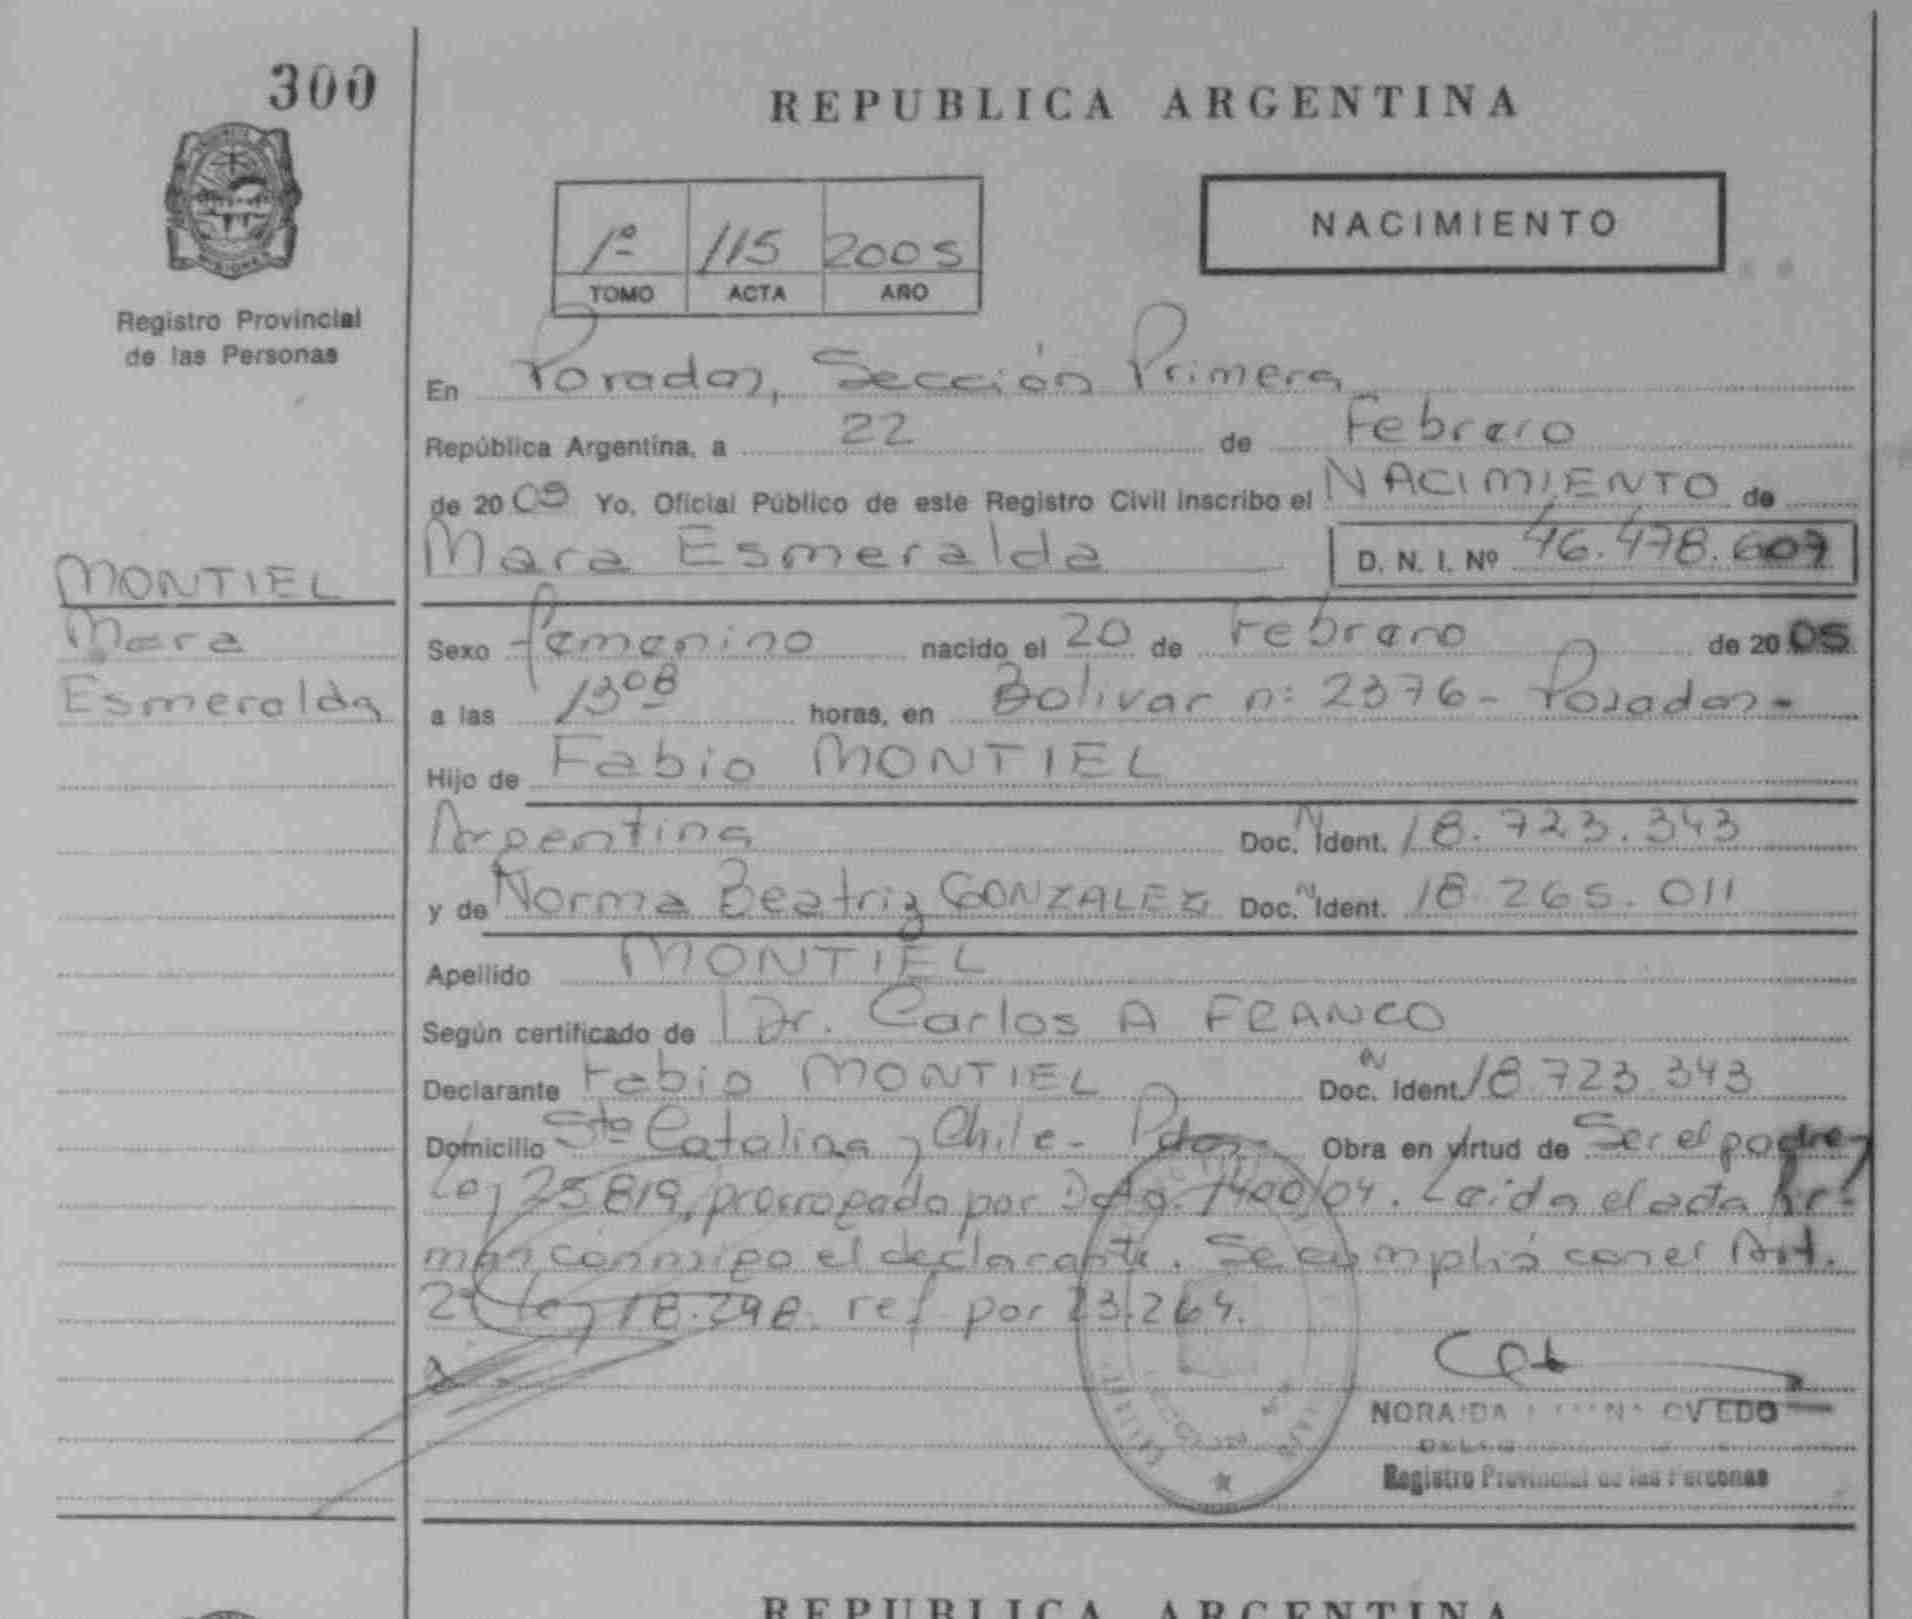 300
REPUBLICA ARGENTINA
NACIMIENTO
1º 115 2005
TOMO ACTA AÑO
MISIONES
Registro Provincial
de las Personas
En Posadas, Sección Primera
República Argentina, a 22 de Febrero
de 2005 Yo, Oficial Público de este Registro Civil inscribo el NACIMIENTO de
Mara Esmeralda D. N. I. Nº 46.478.607
MONTIEL
Mara
Esmeralda
Sexo femenino nacido el 20 de Febrero de 2005
a las 13 08 horas, en Bolivar n: 2376 - Posadas -
Hijo de Fabio MONTIEL
Argentina Doc. N Ident. 18.723.343
y de Norma Beatriz GONZALEZ Doc. N Ident. 18.265.011
Apellido MONTIEL
Según certificado de Dr. Carlos A FRANCO
Declarante Fabio MONTIEL Doc. N Ident. 18.723.343
Domicilio Sta Catalina y Chile - Pdas - Obra en virtud de Ser el padre -
Ley 25.819, prorrogado por Dcto. 1400/04. Leida el acta fir-
man conmigo el declarante. Se cumplió con el Art.
2º ley 18.248. ref por 23.264.
NORAIDA OVIEDO
Registro Provincial de las Personas
REPUBLICA ARGENTINA